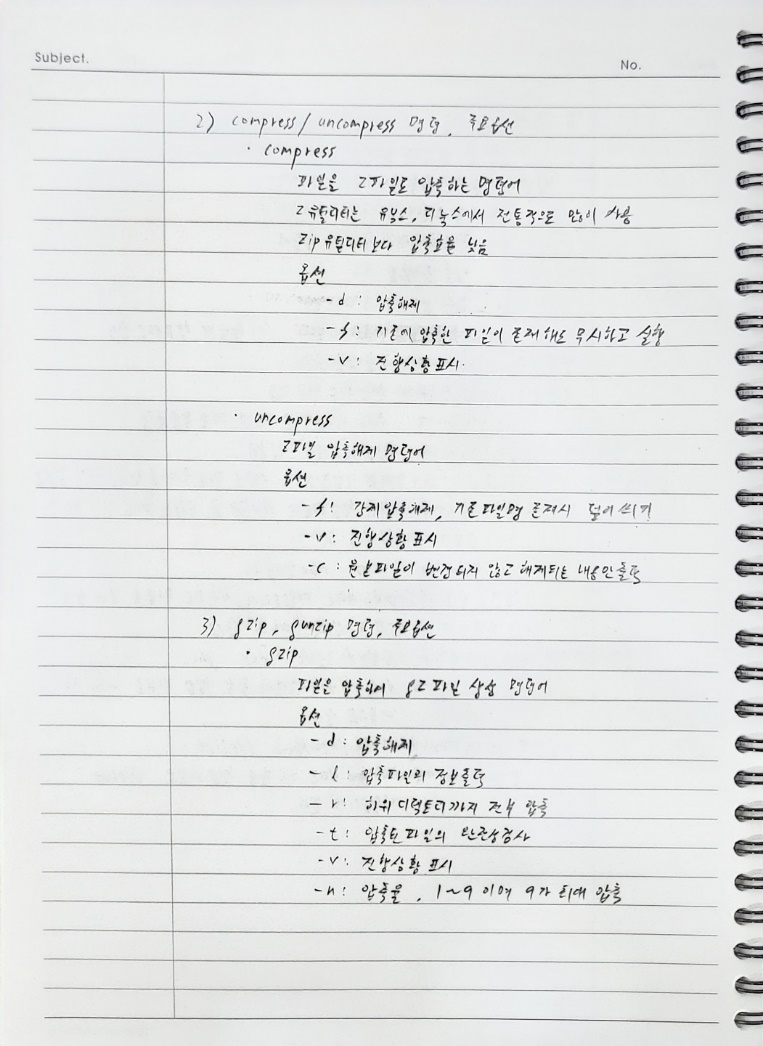 Subject.
No.
2) compress/uncompress 명령, 주요옵션
· compress
파일을 Z파일로 압축하는 명령어
Z유틸리티는 유닉스, 리눅스에서 전통적으로 많이 사용
zip유틸리티보다 압축효율 낮음
옵션
-d : 압축해제
-f : 기존에 압축한 파일이 존재해도 무시하고 실행
-v : 진행상황표시.
· uncompress
Z파일 압축해제 명령어
옵션
-f : 강제압축해제, 기존파일명 존재시 덮어쓰기
-v : 진행상황 표시
-c : 원본파일이 변경되지 않고 해제되는 내용만출력
3) gzip, gunzip 명령, 주요옵션
· gzip
파일을 압축하여 gz파일 생성 명령어
옵션
-d : 압축해제
-l : 압축파일의 정보출력
-r : 하위디렉토리까지 전부 압축
-t : 압축된파일의 완전성검사
-v : 진행상황 표시
-n : 압축율, 1~9 이며 9가 최대 압축